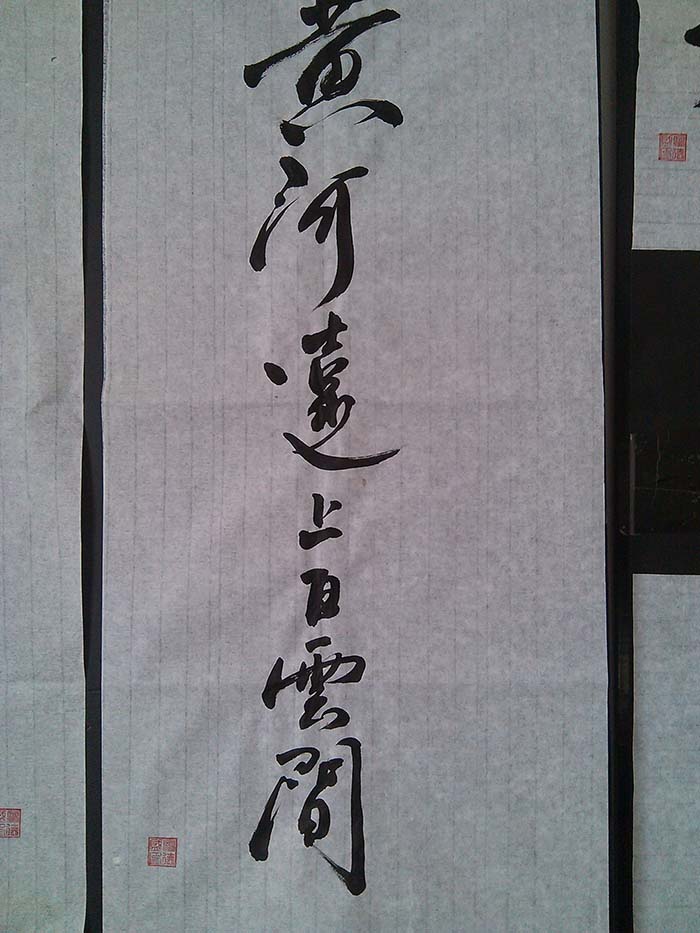 黄河遠上白雲間